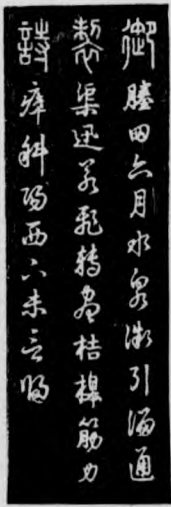 御塍田六月水泉微引溜通
製渠迅若飛轉盡桔槔筋力
詩瘁斜陽西下未言歸